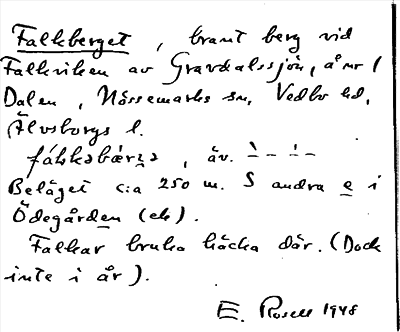 Falkberget, brant berg vid
Falkviken av Gravdalssjön, å nr 1
Dalen, Nössemarks sn, Vedbo hd,
Älvsborgs l.
fálkəbær̥ɜ, äv. `– ́–
Beläget c:a 250 m. S andra e i
Ödegården (ek).
Falkar bruka häcka där. (Dock
inte i år).
E. Rosell 1948